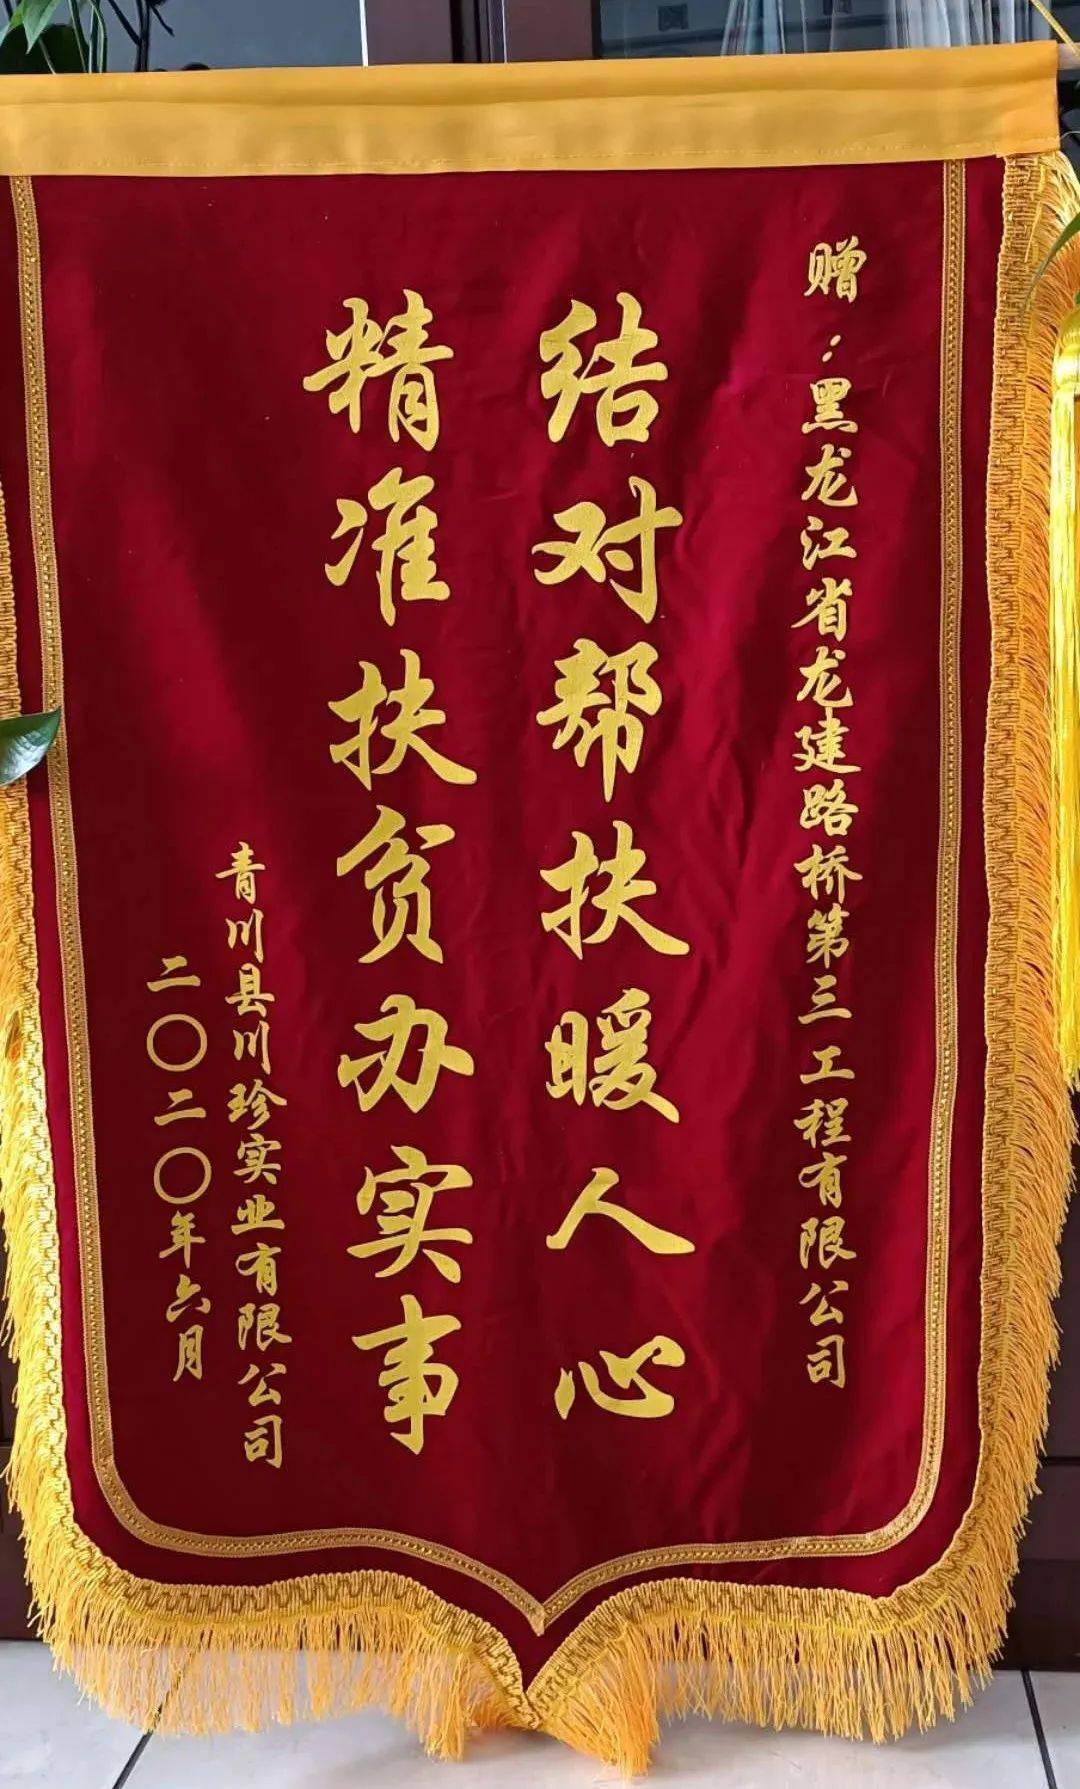 赠：黑龙江省龙建路桥第三工程有限公司
结对帮扶暖人心
精准扶贫办实事
青川县川珍实业有限公司
二〇二〇年六月